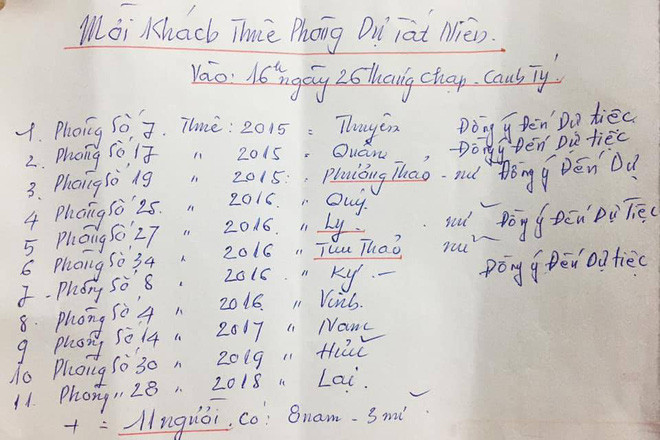 Mời Khách Thuê Phòng Dự Tất Niên.
Vào: 16h ngày 26 Tháng chạp - Canh Tý.
1. Phòng Số 7. Thuê: 2015 = Thuyên Đồng ý Đến Dự tiệc
2. Phòng Số 17 " 2015 = Quân Đồng ý Đến Dự tiệc
3. Phòng Số 19 " 2015: Phương Thảo - nữ Đồng ý Đến Dự
4 Phòng Số 25. " 2016. " Quý.
5 Phòng Số 27 " 2016. " Ly. nữ Đồng ý Đến Dự Tiệc
6 Phòng Số 34 " 2016 " Thu Thảo nữ Đồng ý Đến Dự tiệc
7 - Phòng Số 8 " 2016 " Ký -
8. Phòng Số 4 " 2016. " Vinh.
9 Phòng Số 14 " 2017 " Nam
10 Phòng Số 30 " 2019 "
11. Phòng " 28 " 2018 " Lại.
+ = 11 người. Có: 8 nam - 3 nữ.